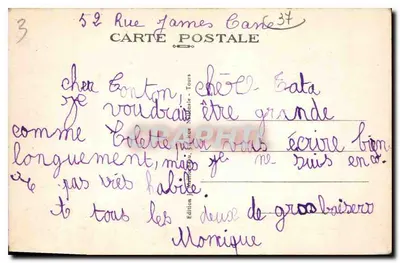 3
52 Rue James Cane 37
CARTE POSTALE
cher Tonton, chère Tata
je voudrais être grande
comme Colette pour vous écrire bien
longuement, mais je ne suis enco
re pas très habile.
A tous les deux de gros baisers
Monique